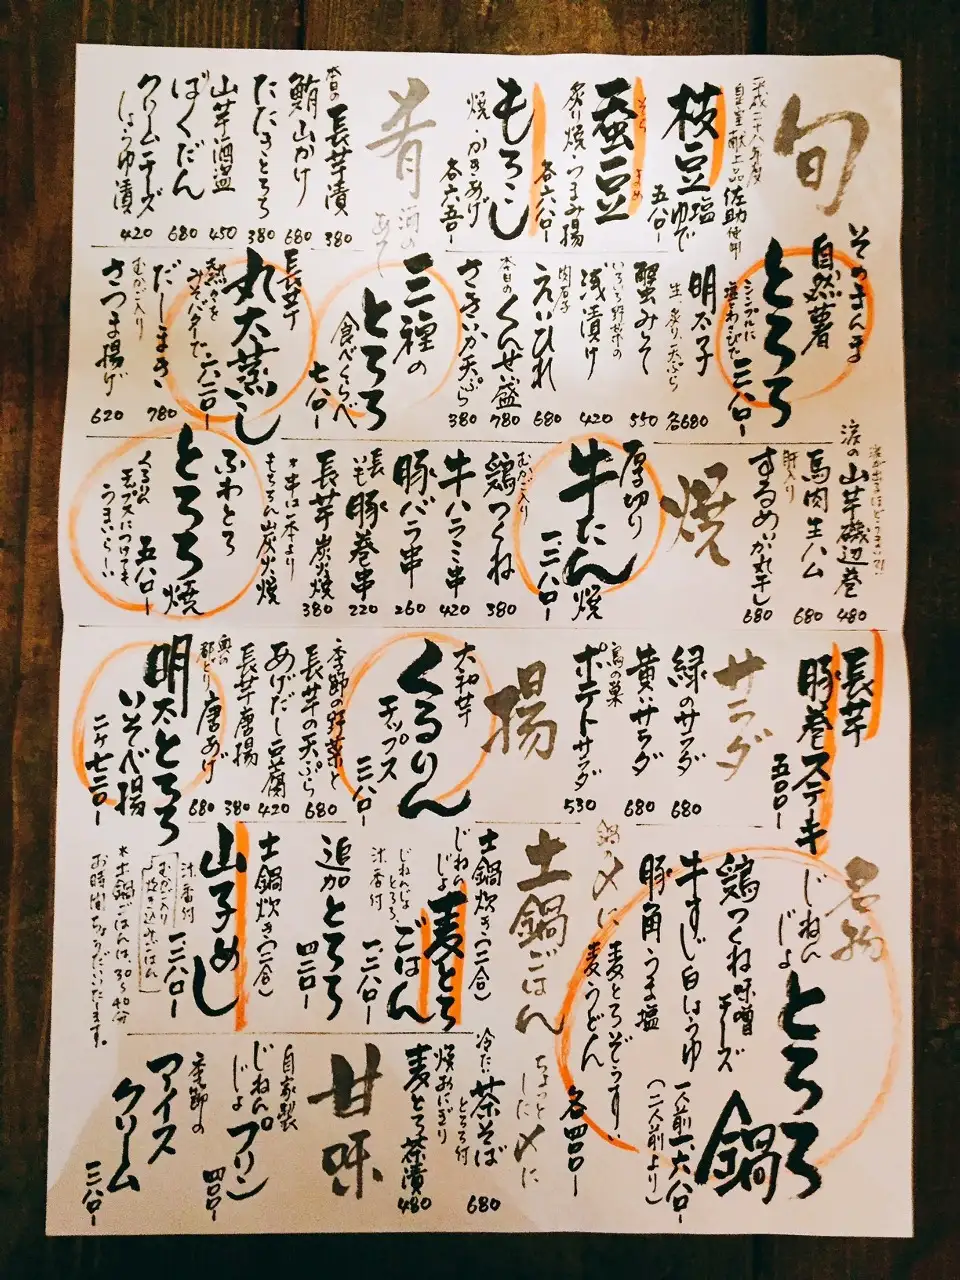 旬
平成二十八年度
皇室献上品 佐助使用
枝豆 塩ゆで
五八〇ー
そらまめ
蚕豆
炙り焼・つまみ揚
各六八〇ー
もろこし
焼・かきあげ
各六五〇ー
肴
酒のあて
本日の
長芋漬
380
鮪山かけ
680
たたきとろろ
380
山芋酒盗
450
ばくだん
680
クリームチーズ
しょうゆ漬
420
そのまんま
自然薯
とろろ
シンプルに
塩とわさびで
三八〇ー
明太子
生、炙り、天ぷら
各680
蟹みそ
550
いろいろ野菜の
浅漬け
420
肉厚
えいひれ
680
本日の
くんせ盛
780
さきいか天ぷら
380
三種の
とろろ
食べくらべ
七八〇ー
長芋
丸太蒸し
熱々を
みそバターで
六二〇ー
だしまき
780
むかご入り
さつま揚げ
620
涙が出るほどうまい!?
涙の
山芋磯辺巻
480
馬肉生ハム
680
肝入り
するめいか丸干し
680
焼
厚切り
牛たん焼
一二八〇ー
むかご入り
鶏つくね
380
牛ハラミ串
420
豚バラ串
260
長いも
豚巻串
220
長芋炭火焼
380
*串は一本より
もちろん山炭火焼
ふわとろ
とろろ焼
くるりん
チップスにつけても
うまいらしい
五八〇ー
長芋
豚巻ステーキ
五八〇ー
サラダ
緑のサラダ
680
黄いサラダ
680
鳥の巣
ポテトサラダ
530
揚
大和芋
くるりん
チップス
三八〇ー
季節の野菜と
長芋の天ぷら
680
あげだし豆腐
420
長芋唐揚
380
奥の都どり
唐あげ
680
明太とろろ
いそべ揚
二ケ七二〇ー
名物
じねんじょ
とろろ鍋
鶏つくね味噌チーズ
牛すじ白しょうゆ
豚角うま塩
一人前一六八〇ー
(二人前より)
鍋の〆に
麦とろぞうすい
麦うどん
各四八〇ー
土鍋ごはん
土鍋炊き(一合)
じねんじょ
麦とろごはん
じねんじょとろろ、
汁香付
一二八〇ー
追加とろろ
四二〇ー
土鍋炊き(一合)
山子めし
汁香付
一二八〇ー
むかご入り
炊き込みごはん
*土鍋ごはんは、30〜40分
お時間ちょうだいいたします。
ちょっとした〆に
冷たい
茶そば
とろろ付
680
焼おにぎり
麦とろ茶漬
480
甘味
自家製
じねんじょ
プリン
四八〇ー
季節の
アイスクリーム
三八〇ー